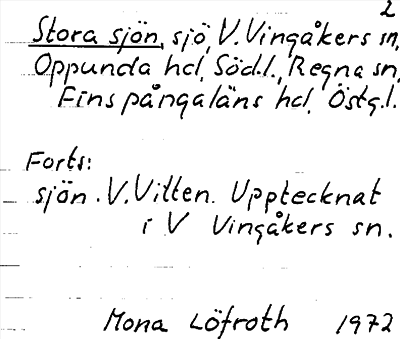 2
Stora sjön, sjö, V. Vingåkers sn,
Oppunda hd, Södl., Regna sn,
Finspångaläns hd, Östg.l.
Forts:
sjön. V. Vitten. Upptecknat
i V Vingåkers sn.
Mona Löfroth 1972